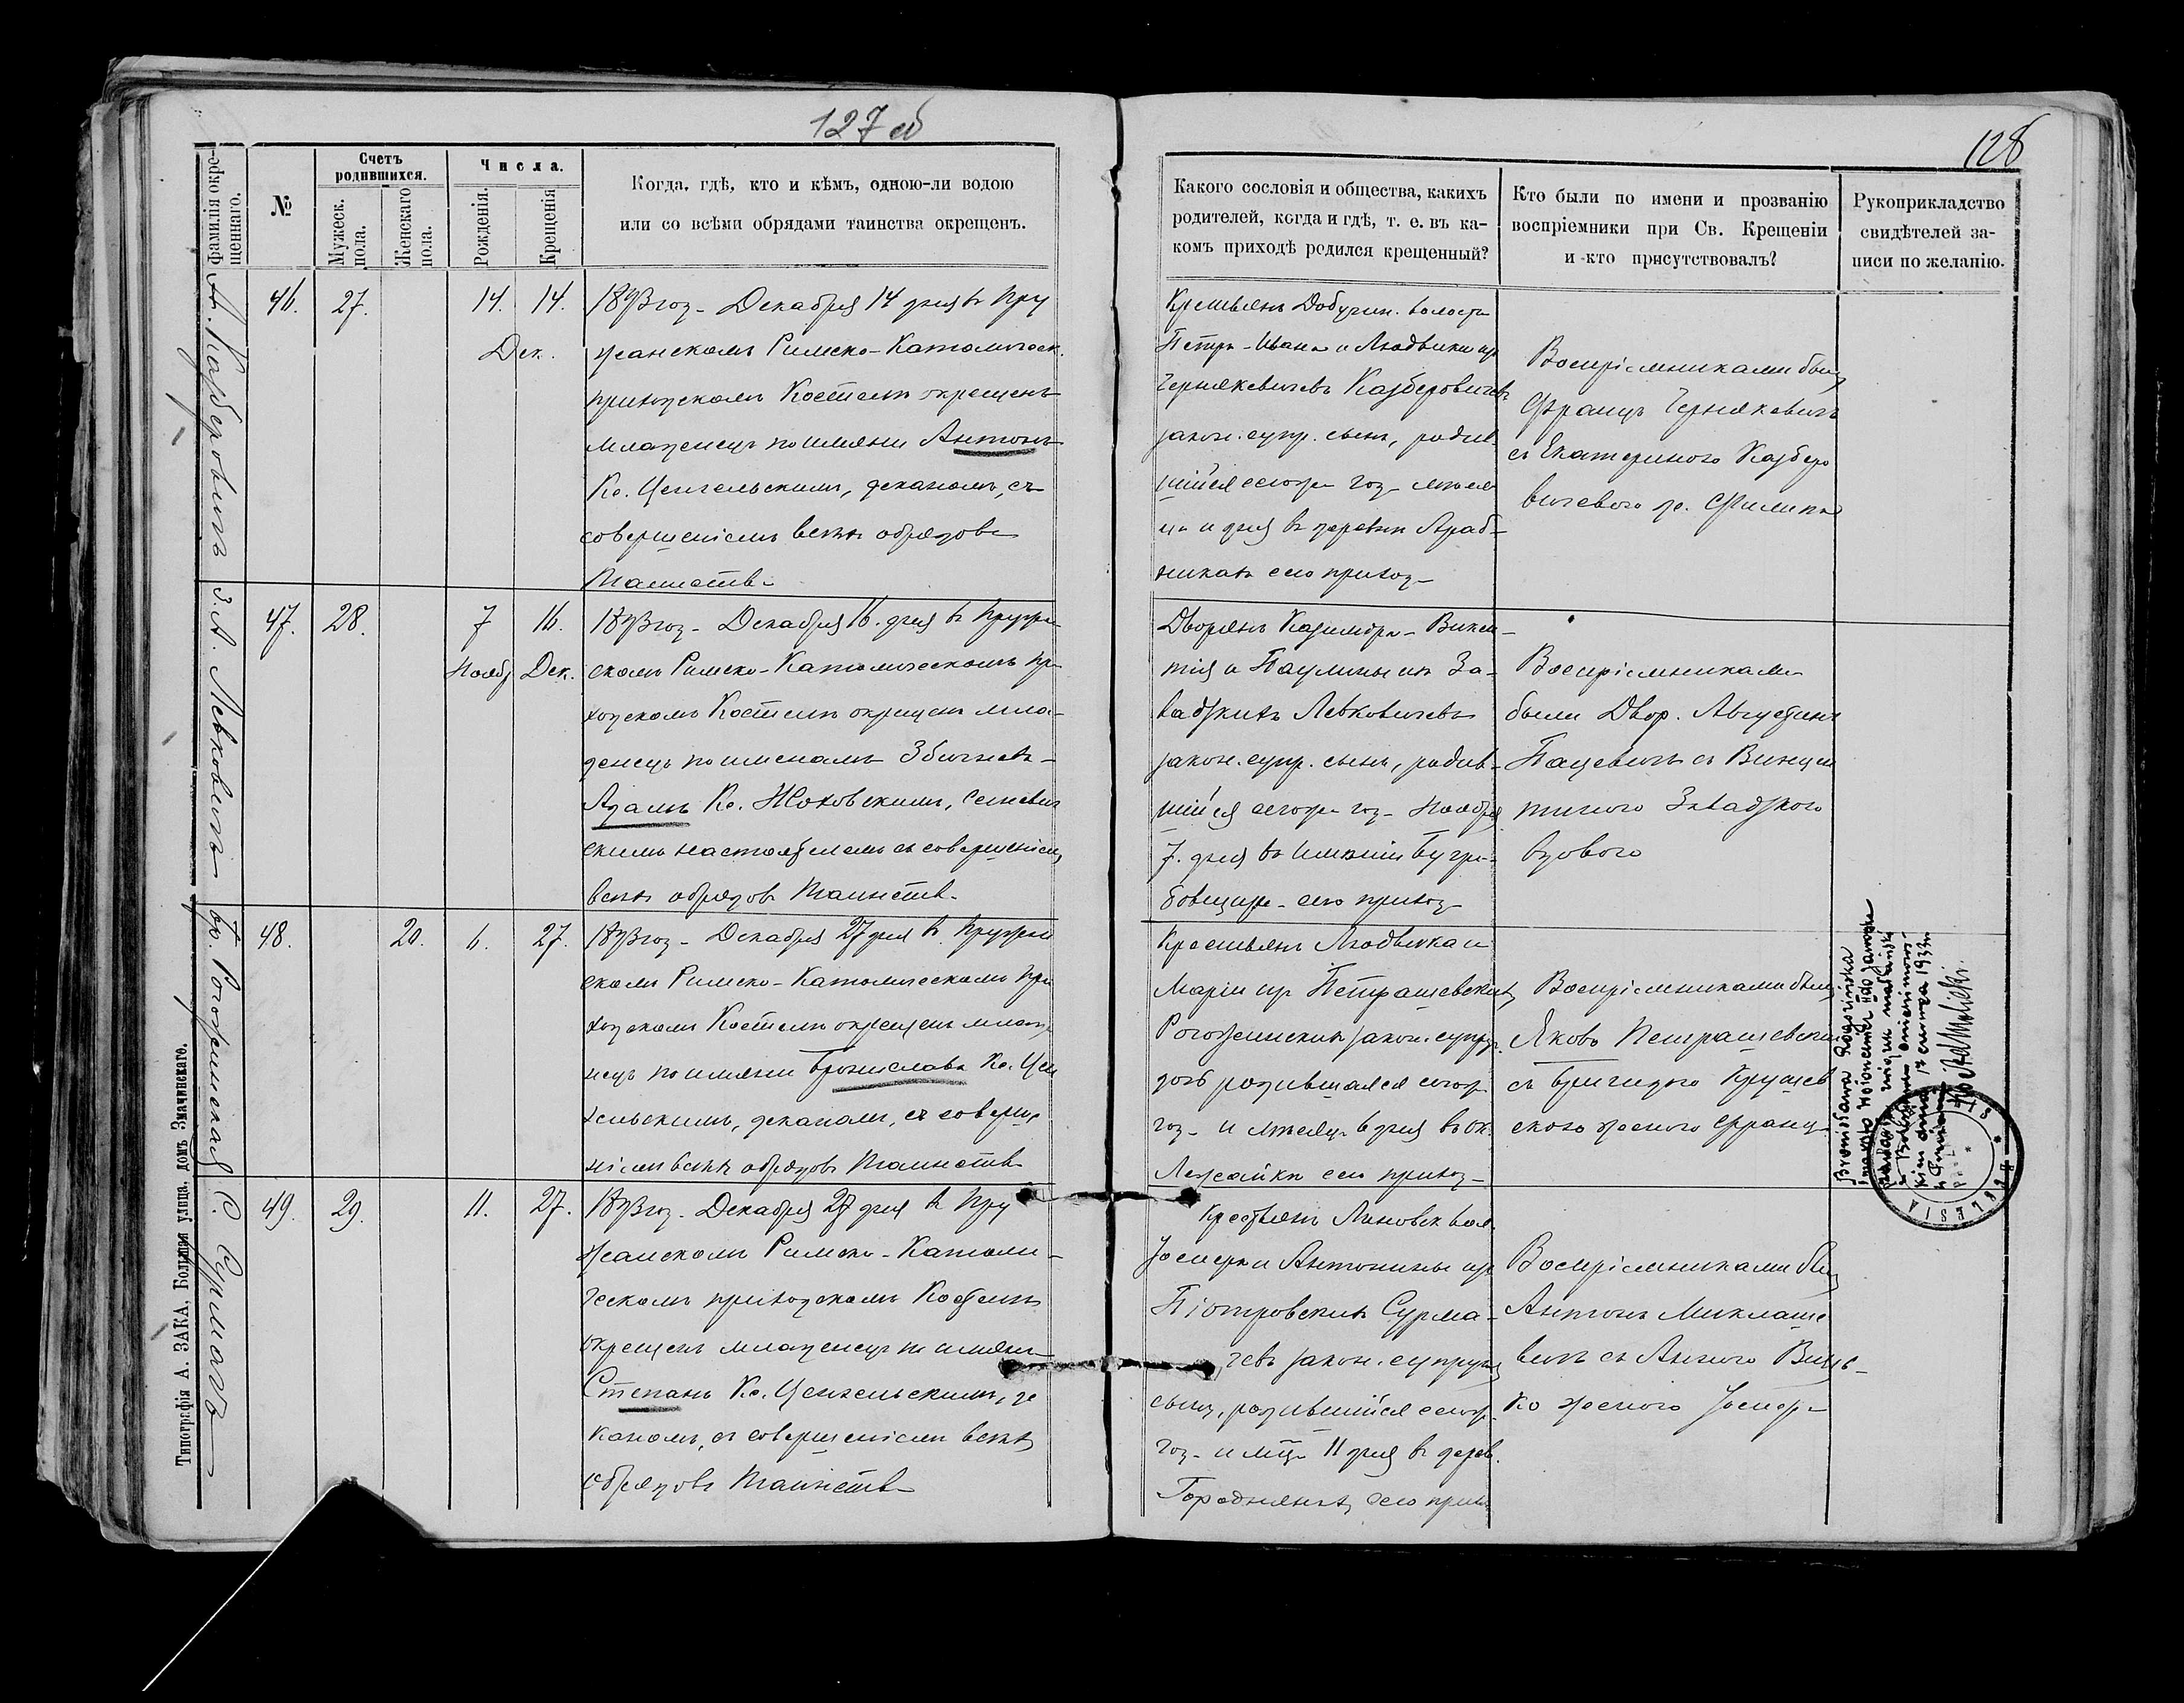 127 об
128
Фамилія окрещеннаго.
№
Счетъ родившихся.
Мужеск. пола.
Женскаго пола.
Числа.
Рожденія.
Крещенія
Когда, гдѣ, кто и кѣмъ, одною-ли водою
или со всѣми обрядами таинства окрещенъ.
Какого сословія и общества, какихъ
родителей, когда и гдѣ, т. е. въ ка-
комъ приходѣ родился крещенный?
Кто были по имени и прозванію
воспріемники при Св. Крещеніи
и кто присутствовалъ?
Рукоприкладство
свидѣтелей за-
писи по желанію.
46.
27.
14.
14.
Дек.
Декабря 14 дня въ Пру
жанскомъ Римско-Католическ.
приходскомъ Костелѣ окрещенъ
младенецъ по имяни Антонъ
Кс. Ценгельскимъ, деканомъ, съ
совершеніемъ всѣхъ обрядовъ
Таинства
Крестьянъ Добучин. волости
Петра-Ивана и Людвики изъ
Чернякевичевъ Казберовичевъ
закон. супр. сынъ, родив-
шійся сего же год. мѣся
ца и дня въ деревни Араб-
никахъ сего приход.
Воспріемниками были
Францъ Чернякевичъ
съ Екатериною Казберо
вичевою
А. Казберовичъ
47.
28.
7
Нояб
16.
Дек.
Декабря 16. дня въ Пружан
скомъ Римско-Католическомъ пр
ходскомъ Костелѣ окрещенъ мла-
денецъ по именамъ Збигневъ-
Адамъ Кс. Жоховскимъ,
скимъ настоятелемъ съ совершеніем
всѣхъ обрядовъ Таинств.
Дворянъ Казимира-Викен-
тія и Паулины изъ За-
вадзкихъ Левковичевъ
закон. супр. сынъ, родив-
шійся сего же год. Ноября
7. дня въ имѣніи
сего приход.
Воспріемниками
были Двор. Августинъ
Пацевичъ съ Винцен
тиною Завадзкою
вдовою
З. А. Левковичъ
48.
20.
6.
27.
Декабря 27 дня въ Пружан
скомъ Римско-Католическомъ при
ходскомъ Костелѣ окрещенъ младе
нецъ по имяни Брониславa Кс. Цен
гельскимъ, деканомъ, съ соверше
ніемъ всѣхъ обрядовъ Таинства
Крестьянъ Людвика и
Маріи изъ Петрашевскихъ
Рогозинскихъ закон. супруг.
дочь родившаяся сего же
год. и мѣсяца 6 дня въ ок.
Лежайка сего приход.
Воспріемниками были
Яковъ Петрашевскій
съ Бригидою Крушев
скою женою Франц
Бр. Рогозинская
Bronisława Rogozińska
dnia 17 czerwca 1933 r.
49.
29.
11.
27.
Декабря 27 дня въ Пру
жанскомъ Римско-Католи-
ческомъ приходскомъ Костелѣ
окрещенъ младенецъ по имяни
Степанъ Кс. Ценгельскимъ, де
каномъ, съ совершеніемъ всѣхъ
обрядовъ Таинства
Крестьянъ Линовск вол.
Іосифа и Антонины изъ
Піотровскихъ Сурма-
чевъ закон. супругъ
сынъ, родившійся сего же
год. и мца 11 дня въ дерев.
Городнянахъ сего приход
Воспріемниками были
Антонъ Миклаше
вичъ съ Анною
женою Іосифа
С. Сурмачъ
Типографія А. ЗАКА, Большая улица, домъ Змачинскаго.